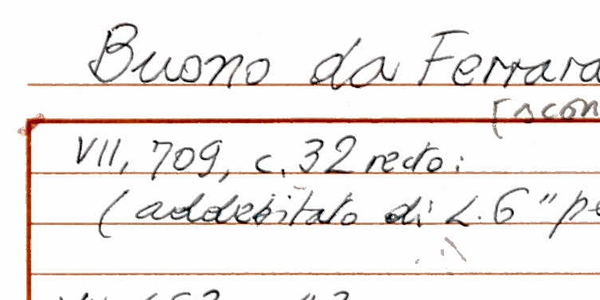 Buono da Ferrara
[scon
VII, 709, c. 32 recto:
(addebitato di L. 6 "pe